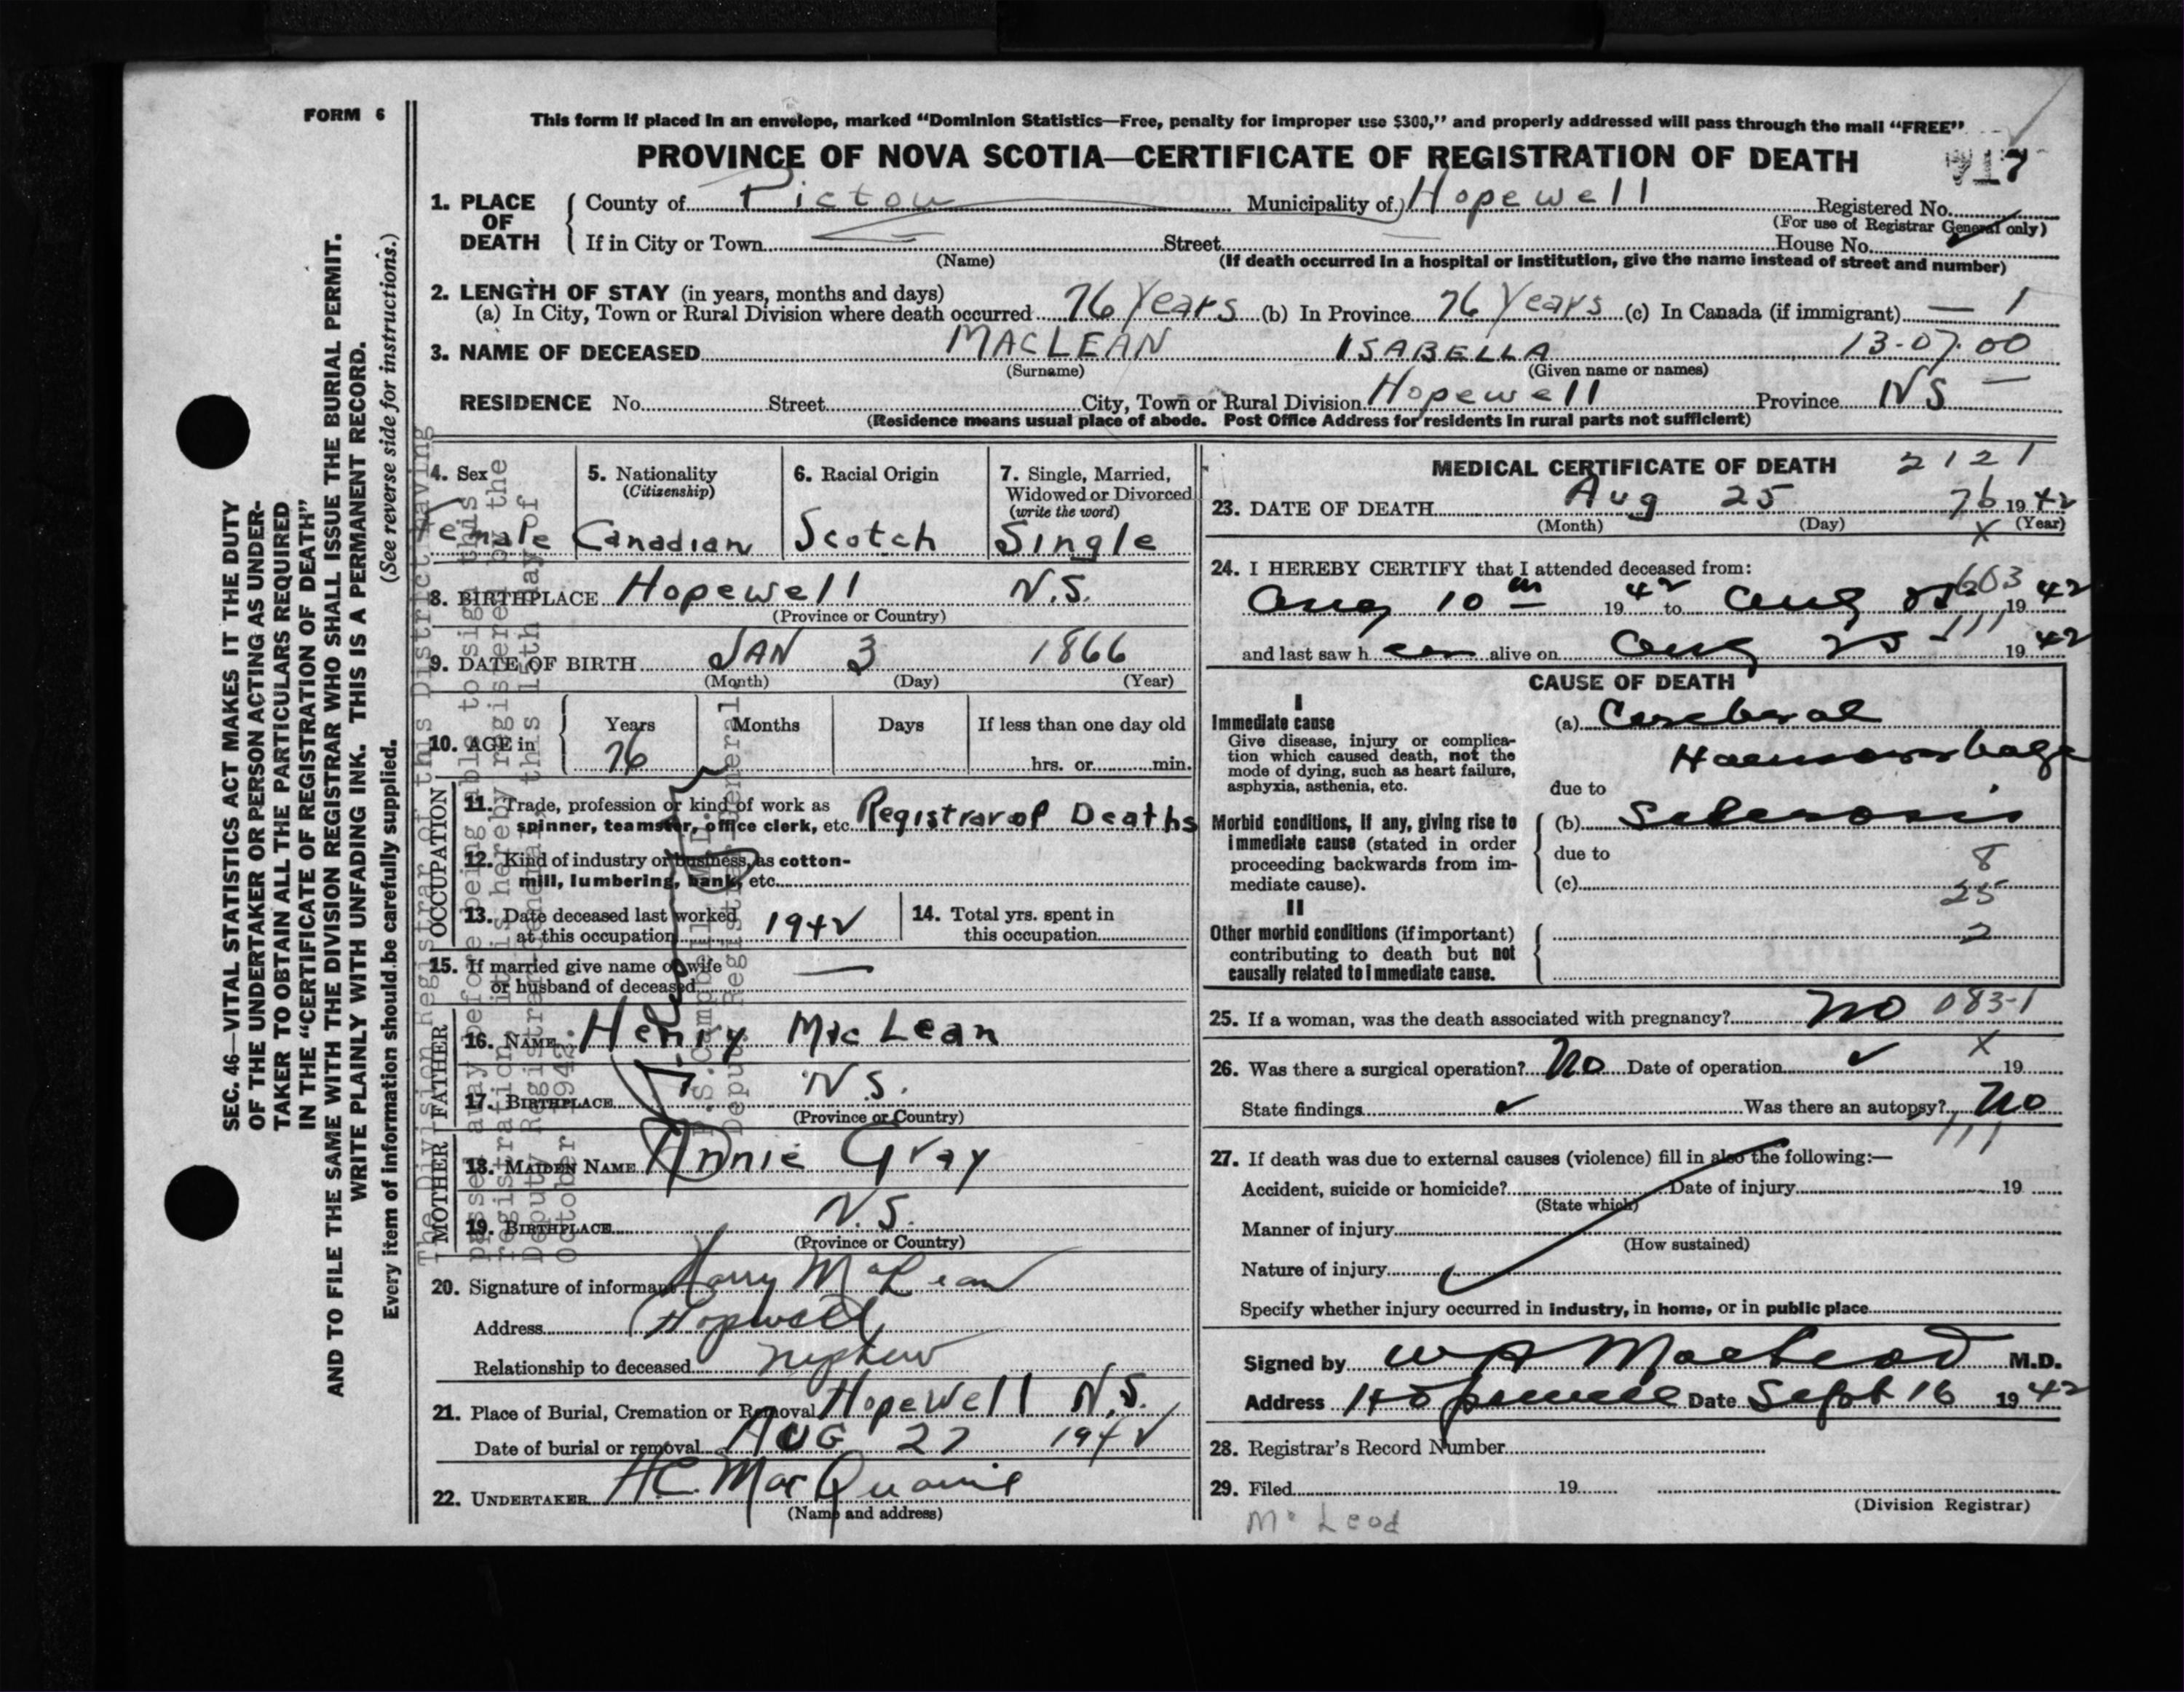 FORM 6
This form if placed in an envelope, marked “Dominion Statistics—Free, penalty for improper use $300,” and properly addressed will pass through the mail “FREE”
PROVINCE OF NOVA SCOTIA—CERTIFICATE OF REGISTRATION OF DEATH
1. PLACE OF DEATH { County of Pictou Municipality of Hopewell Registered No.
(For use of Registrar General only)
If in City or Town Street House No.
(Name) (If death occurred in a hospital or institution, give the name instead of street and number)
2. LENGTH OF STAY (in years, months and days)
(a) In City, Town or Rural Division where death occurred 76 Years (b) In Province 76 Years (c) In Canada (if immigrant) — 1
3. NAME OF DECEASED MACLEAN ISABELLA 13-07-00
(Surname) (Given name or names)
RESIDENCE No. Street City, Town or Rural Division Hopewell Province NS —
(Residence means usual place of abode. Post Office Address for residents in rural parts not sufficient)
SEC. 46—VITAL STATISTICS ACT MAKES IT THE DUTY
OF THE UNDERTAKER OR PERSON ACTING AS UNDER-
TAKER TO OBTAIN ALL THE PARTICULARS REQUIRED
IN THE “CERTIFICATE OF REGISTRATION OF DEATH”
AND TO FILE THE SAME WITH THE DIVISION REGISTRAR WHO SHALL ISSUE THE BURIAL PERMIT.
WRITE PLAINLY WITH UNFADING INK. THIS IS A PERMANENT RECORD.
Every item of information should be carefully supplied. (See reverse side for instructions.)
4. Sex Female
5. Nationality (Citizenship) Canadian
6. Racial Origin Scotch
7. Single, Married, Widowed or Divorced (write the word) Single
8. BIRTHPLACE Hopewell N.S.
(Province or Country)
9. DATE OF BIRTH JAN 3 1866
(Month) (Day) (Year)
10. AGE in { Years 76 Months Days If less than one day old
hrs. or min.
OCCUPATION
11. Trade, profession or kind of work as
spinner, teamster, office clerk, etc. Registrar of Deaths
12. Kind of industry or business, as cotton-
mill, lumbering, bank, etc.
13. Date deceased last worked
at this occupation 1942
14. Total yrs. spent in
this occupation
15. If married give name of wife
or husband of deceased —
FATHER
16. NAME Henry MacLean
17. BIRTHPLACE N.S.
(Province or Country)
MOTHER
18. MAIDEN NAME Annie Gray
19. BIRTHPLACE N.S.
(Province or Country)
20. Signature of informant Harry McLean
Address Hopewell
Relationship to deceased nephew
21. Place of Burial, Cremation or Removal Hopewell N.S.
Date of burial or removal AUG 27 1942
22. UNDERTAKER H.C. MacQuarrie
(Name and address)
The Division Registrar of this District having
passed away before being able to sign this
registration it is hereby registered by the
Deputy Registrar General, this 15th day of
October 1942.
Deputy Registrar General
MEDICAL CERTIFICATE OF DEATH 2121
23. DATE OF DEATH Aug 25 76 1942
(Month) (Day) (Year)
X
24. I HEREBY CERTIFY that I attended deceased from:
Aug 10th 1942 to Aug 1942
and last saw her alive on Aug 25 1942
CAUSE OF DEATH
I
Immediate cause
Give disease, injury or complica-
tion which caused death, not the
mode of dying, such as heart failure,
asphyxia, asthenia, etc.
(a) Cerebral
Haemorrhage
due to
Morbid conditions, if any, giving rise to
immediate cause (stated in order
proceeding backwards from im-
mediate cause).
(b) Sclerosis
due to 8
(c) 25
II
Other morbid conditions (if important)
contributing to death but not
causally related to immediate cause.
2
25. If a woman, was the death associated with pregnancy? no 083-1
X
26. Was there a surgical operation? No Date of operation 19
State findings Was there an autopsy? No
111
27. If death was due to external causes (violence) fill in also the following:—
Accident, suicide or homicide? Date of injury 19
(State which)
Manner of injury
(How sustained)
Nature of injury
Specify whether injury occurred in industry, in home, or in public place
Signed by W A MacLeod M.D.
Address Hopewell Date Sept 16 1942
28. Registrar’s Record Number
29. Filed 19
(Division Registrar)
McLeod